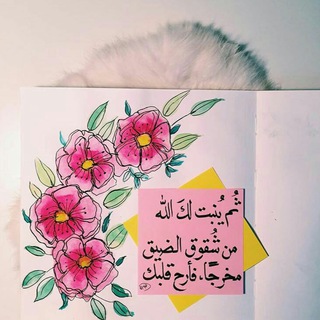 ثُم يُنبت لكَ الله
من شُقوق الضيق
مخرجًا، فأرح قلبك